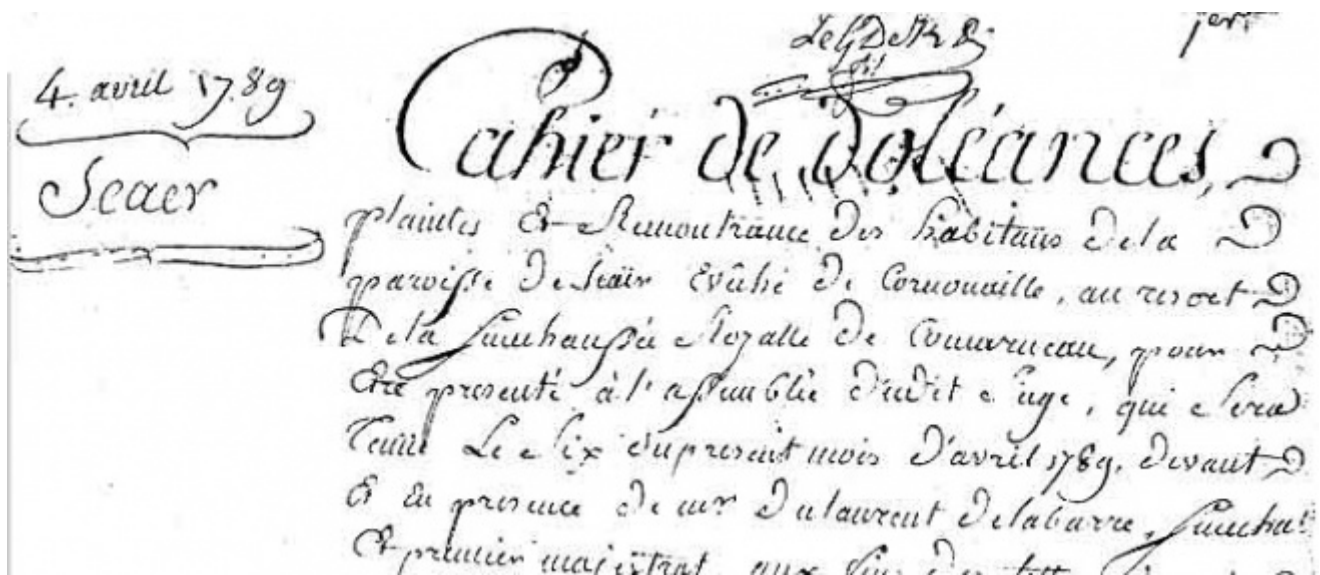 4. avril 1789
Scaer
Cahier de doléances,
plaintes Et Remontrance des habitans de la
paroisse de Scaër Evêché de Cornouaille, au resort
De la Senechaussée Royalle de Concarneau, pour
Etre presenté à l'assemblée dudit siege, qui sera
Tenue Le six du present mois d'avril 1789. devant
Et En presence de mr dulaurent delabarre, Senechal
Et premier majistrat, aux fins des